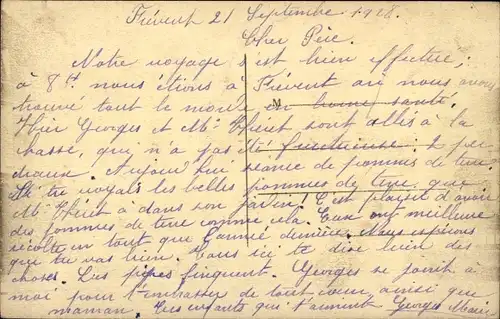 Frévent 21 Septembre 1928.
Cher Père.
Notre voyage s'est bien effectué;
à 8h. nous étions à Frévent où nous avons
trouvé tout le monde en bonne santé.
Hier Georges et Mr Théret sont allés à la
chasse, qui n'a pas été fructueuse. 2 per-
dreaux. Aujourd'hui séance de pommes de terre.
Si tu voyais les belles pommes de terre que
Mr Théret à dans son jardin. C'est plaisir d'avoir
des pommes de terre comme cela. Eux ont meilleure
récolte en tout que l'année dernière. Nous espérons
que tu vas bien. Tous ici te dise bien des
choses. Les pipes flinquent. Georges se joint à
moi pour t'embrasser de tout cœur, ainsi que
maman. Tes enfants qui t'aiment Georges Marie